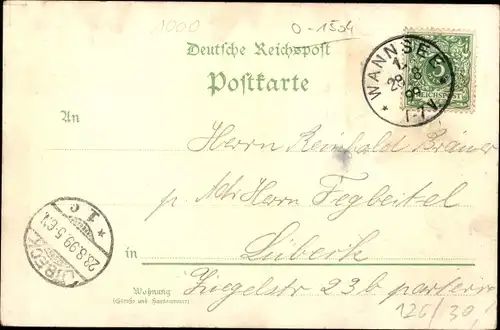 1000
0-1504
Deutsche Reichspost
Postkarte
WANNSEE
28 8 99
7-7V.
5
REICHSPOST
An
Herrn Reinhold Bräuer
p. Adr Herrn Fegbeitel
LÜBECK
1 c
28.8.99. 5-6N.
in Lübeck
Wohnung
(Straße und Hausnummer)
Ziegelstr 23b parterre
126/30